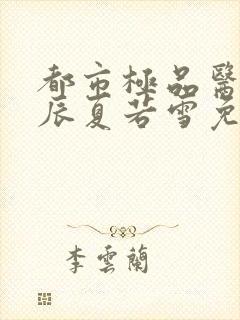 都市極品醫
辰夏若雪免
李雲蘭